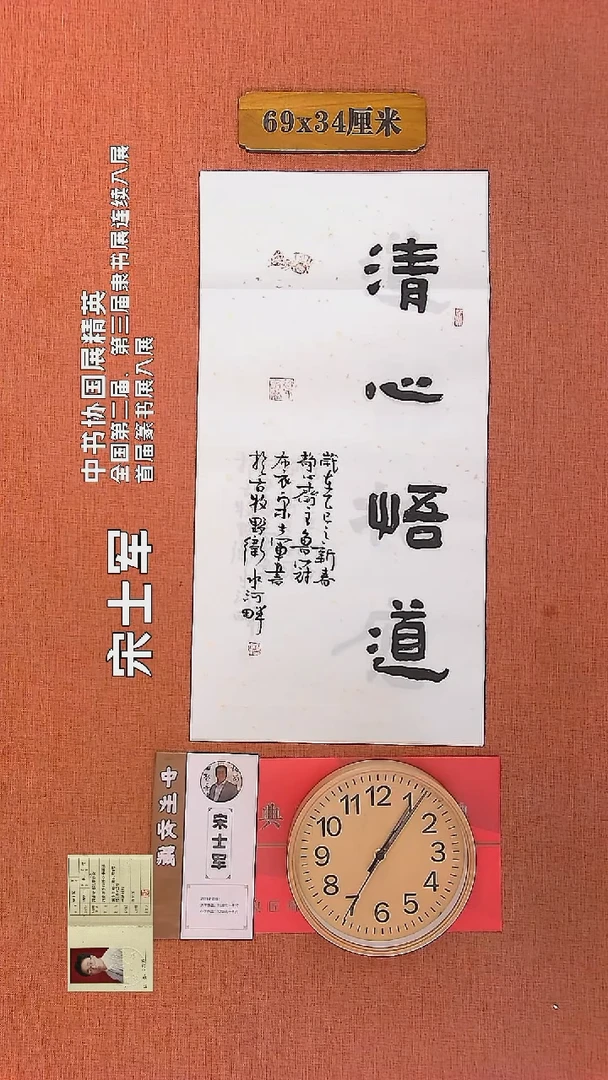 69x34厘米
清心悟道
歲在乙巳之新春
布衣宋士軍書
於古牧野衛水河畔
中书协国展精英
全国第二届、第三届隶书展连续入展
首届篆书展入展
宋士军
宋士军
典
12
1
2
3
4
5
6
7
8
9
10
11